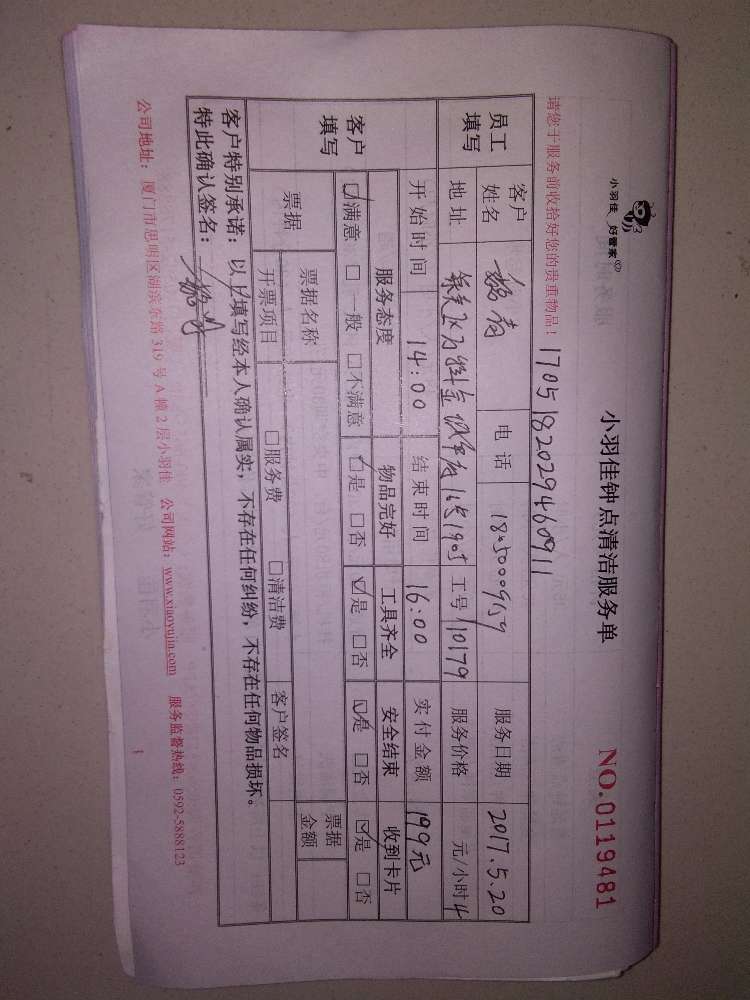 小羽佳 好管家
小羽佳钟点清洁服务单
NO.0119481
请您于服务前收拾好您的贵重物品！
1705182029460911
员工填写
客户姓名
电话
服务日期 2017.5.20
地址
工号 10179
服务价格 元/小时
开始时间 14:00 结束时间 16:00 实付金额 199元
客户填写
服务态度 物品完好 工具齐全 安全结束 收到卡片
☑满意 □一般 □不满意 ☑是 □否 ☑是 □否 ☑是 □否 ☑是 □否
票据
票据名称
票据金额
开票项目 □服务费 □清洁费 客户签名
客户特别承诺：以上填写经本人确认属实，不存在任何纠纷，不存在任何物品损坏。
特此确认签名：
公司地址：厦门市思明区湖滨东路 319 号 A 幢 2 层小羽佳 公司网站：www.xiaoyujia.com 服务监督热线：0592-5888123
1